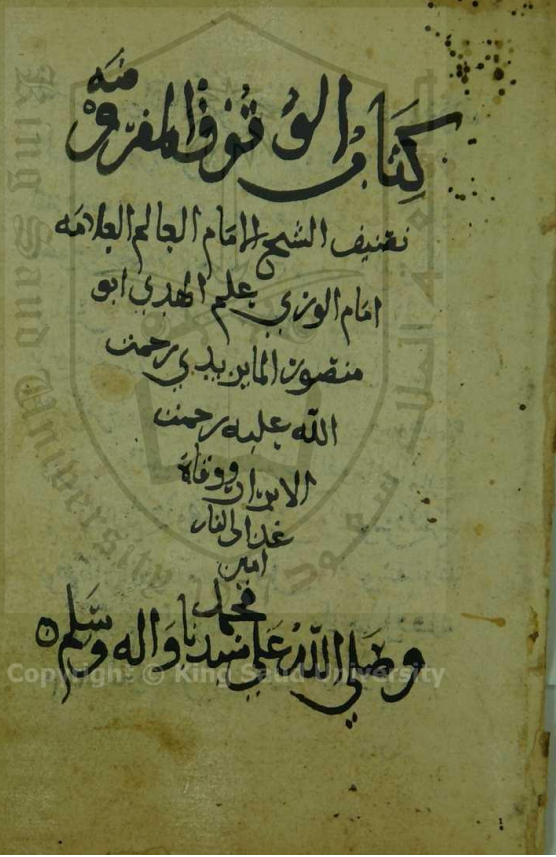 كتاب الوقوف المفروضه
تصنيف الشيخ الامام العالم العلامه
امام الوري علم الهدي ابو
منصور الماتريدي رحمت
الله عليه رحمت
الابرار ووقاه
عذاب النار
امين
وصلي الله علي سيدنا محمد واله وسلم
King Saud University
Copyright © King Saud University